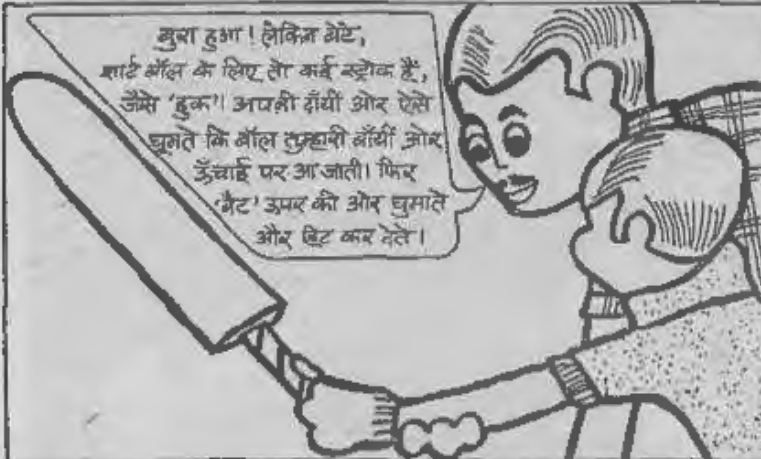 बुरा हुआ! लेकिन बेटे,
शार्ट बॉल के लिए तो कई स्ट्रोक हैं,
जैसे 'हुक'। अपनी दाँयी ओर ऐसे
घुमते कि बॉल तुम्हारी बाँयीं ओर
ऊँचाई पर आ जाती। फिर
'बैट' उपर की ओर घुमाते
और हिट कर देते।